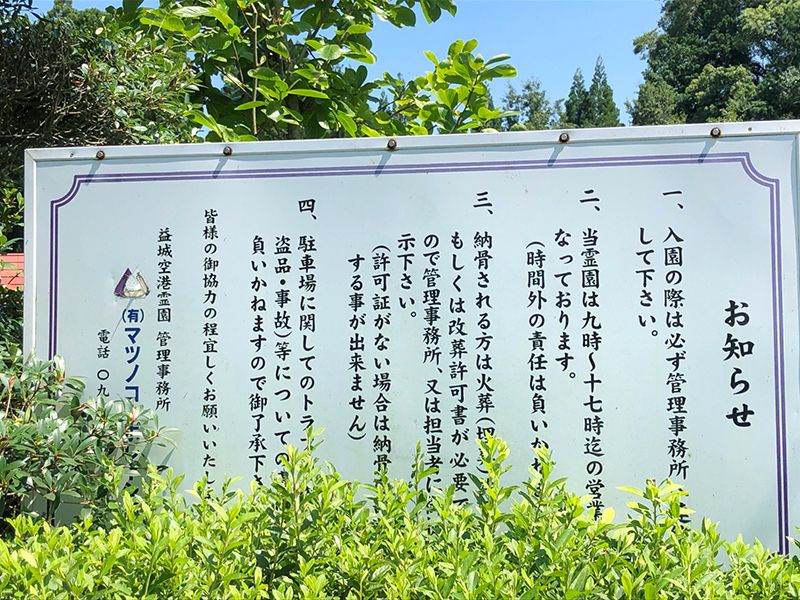 お知らせ
一、入園の際は必ず管理事務所
して下さい。
二、当霊園は九時〜十七時迄の営業
なっております。
(時間外の責任は負いかね
三、納骨される方は火葬(埋
もしくは改葬許可書が必要で
ので管理事務所、又は担当者に
示下さい。
(許可証がない場合は納骨
する事が出来ません)
四、駐車場に関してのトラ
盗品・事故)等についての
負いかねますので御了承下さ
皆様の御協力の程宜しくお願いいたし
益城空港霊園 管理事務所
(有)マツノコ
電話 〇九